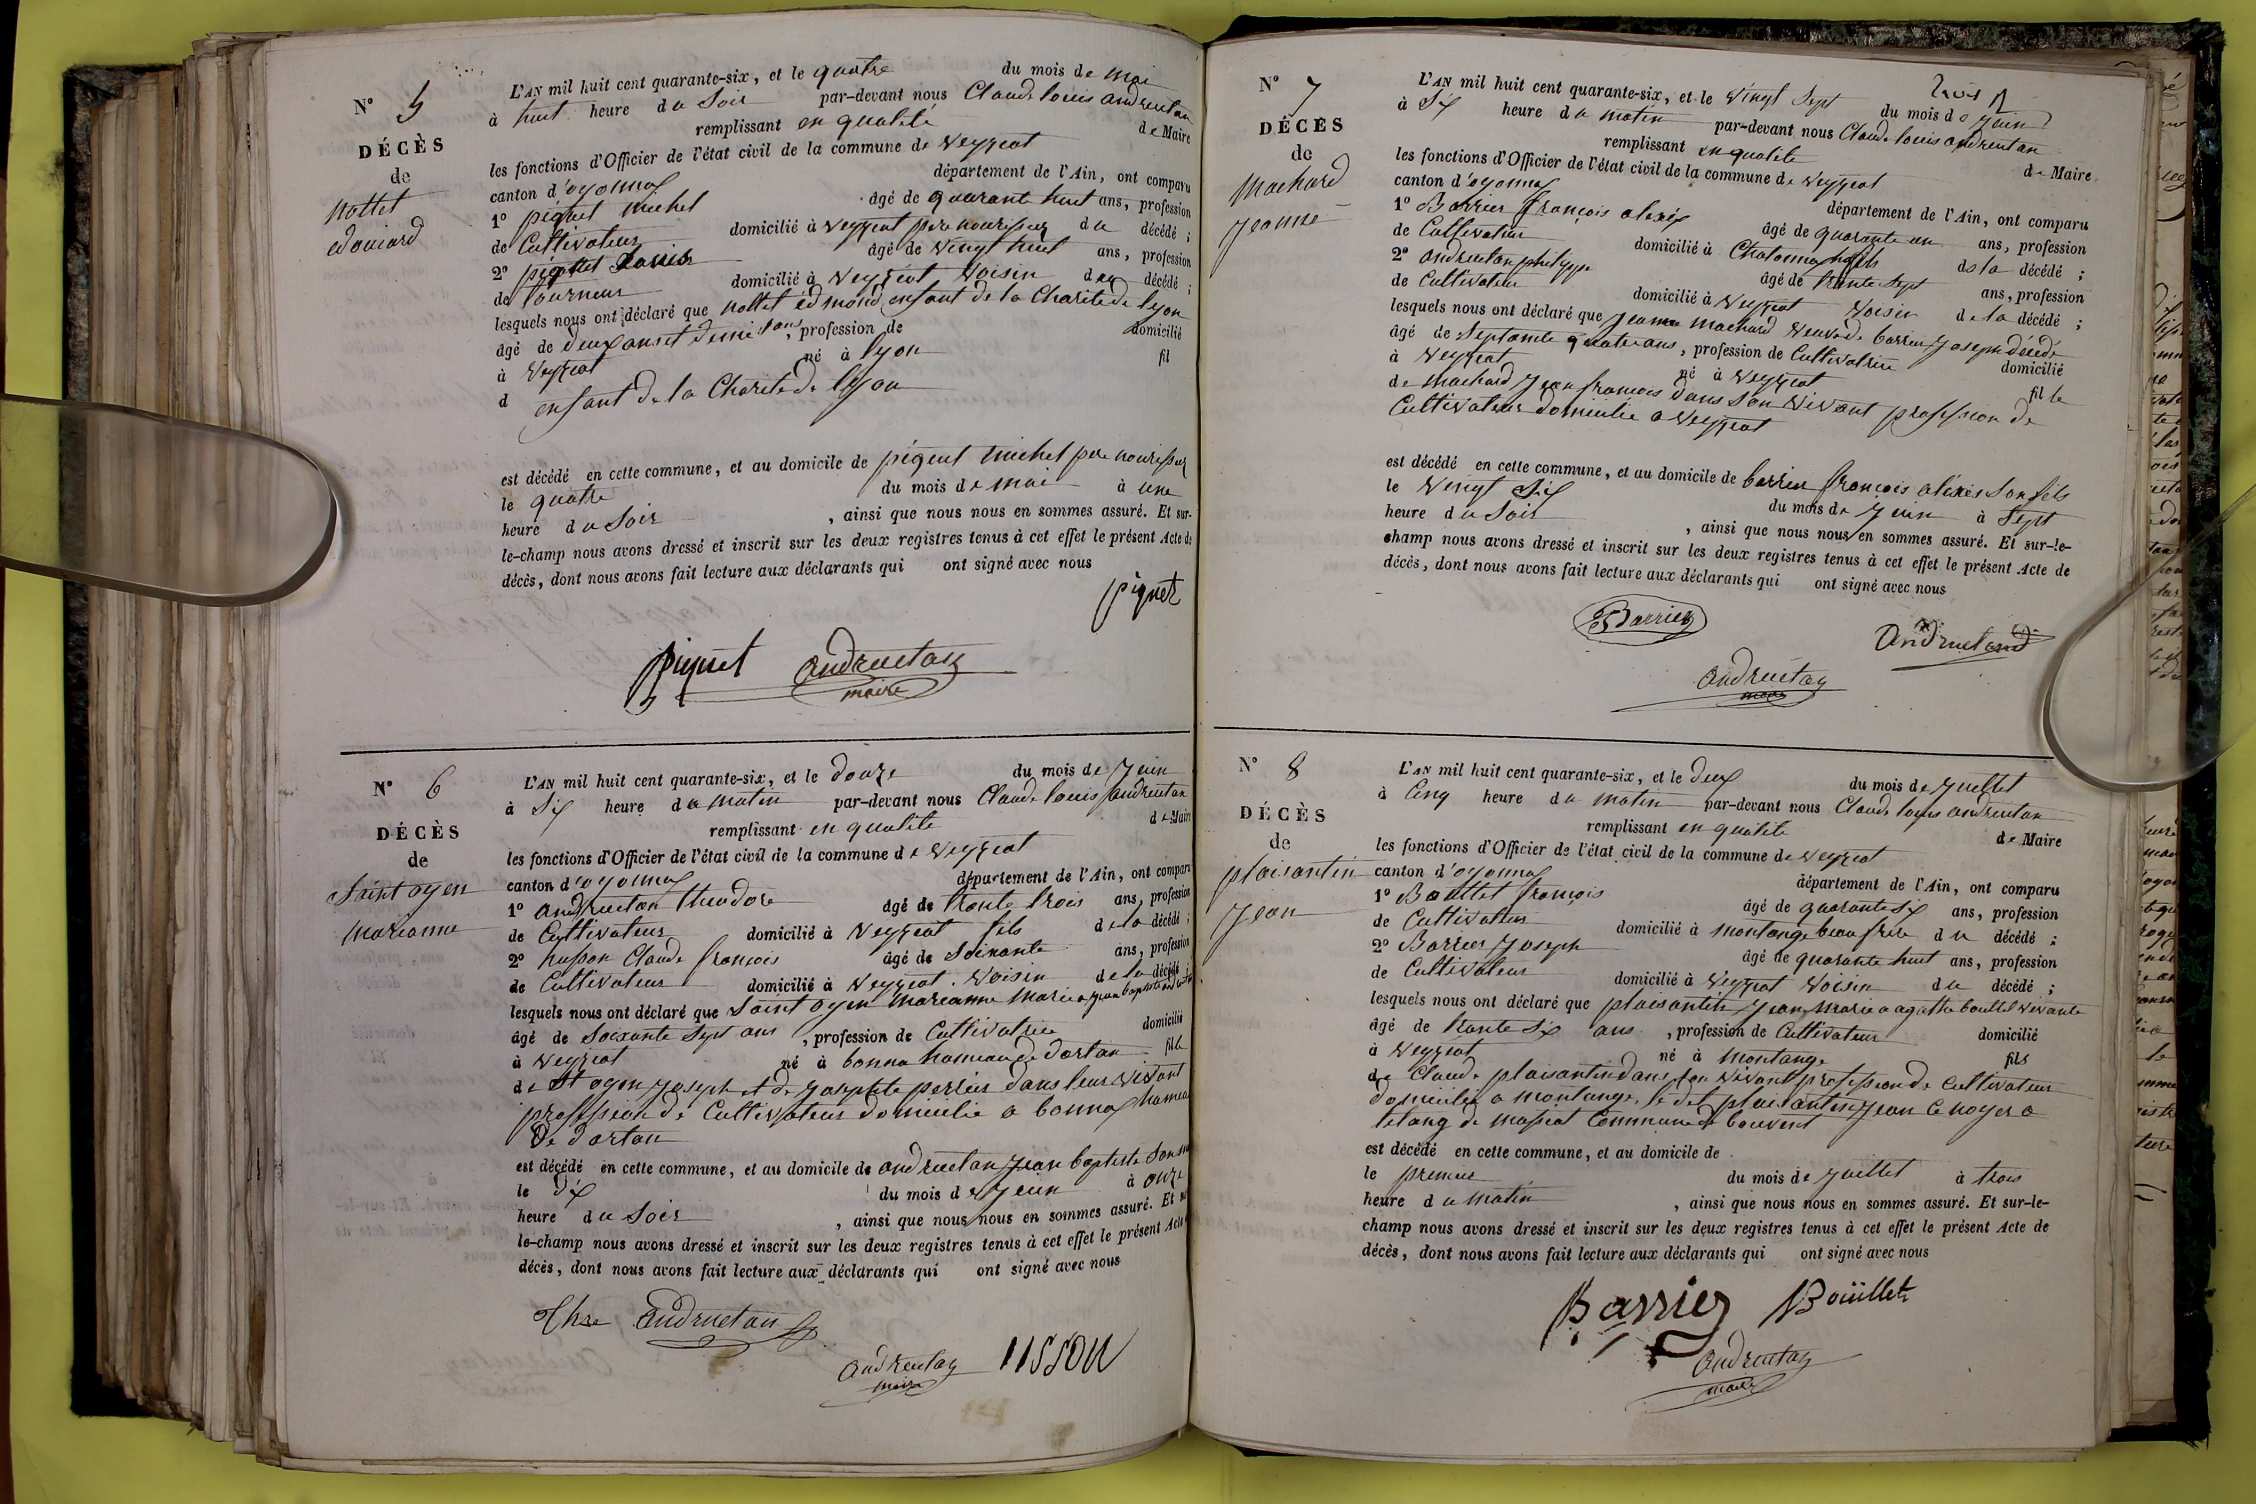 N° 5
DÉCÈS
de
nottet
édouard
L'AN mil huit cent quarante-six, et le quatre du mois de mai
à huit heure du Soir par-devant nous Claude louis andruetan
remplissant en qualité de Maire
les fonctions d'Officier de l'état civil de la commune de Veyziat
canton d'oyonnax département de l'Ain, ont comparu
1° piquet michel âgé de quarant huit ans, profession
de Cultivateur domicilié à Veyziat pere nourisseur du décédé ;
2° Louis âgé de vingt huit ans, profession
de tourneur domicilié à Veyziat Voisin du décédé ;
lesquels nous ont déclaré que nottet edmond enfant de la Charite de lyon
âgé de deux ans et demi ans, profession de domicilié
à Veyziat né à lyon fil
d enfant de la Charite de lyon
est décédé en cette commune, et au domicile de piquet michel pere nourisseur
le quatre du mois de mai à une
heure du Soir , ainsi que nous nous en sommes assuré. Et sur-
le-champ nous avons dressé et inscrit sur les deux registres tenus à cet effet le présent Acte de
décès, dont nous avons fait lecture aux déclarants qui ont signé avec nous
piquet
piquet andruetan
maire
N° 6
DÉCÈS
de
Saint oyen
marianne
L'AN mil huit cent quarante-six, et le douze du mois de Juin
à Six heure du matin par-devant nous Claude louis andruetan
remplissant en qualité de Maire
les fonctions d'Officier de l'état civil de la commune de Veyziat
canton d'oyonnax département de l'Ain, ont comparu
1° andruetan theodore âgé de trente trois ans, profession
de Cultivateur domicilié à Veyziat fils de la décédé ;
2° husson Claude françois âgé de Soixante ans, profession
de Cultivateur domicilié à Veyziat Voisin de la décédé ;
lesquels nous ont déclaré que Saint oyen marianne marie a jean baptiste andruetan
âgé de Soixante Sept ans , profession de Cultivatrice domicilié
à Veyziat né à bonna hameau de dortan fille
de St oyen Joseph et de Josephte perrier dans leur vivant
profession de Cultivateur domicilie a bonnax hameau
De dortan
est décédé en cette commune, et au domicile de andruetan Jean baptiste Son
le dix du mois de Juin à onze
heure du Soir , ainsi que nous nous en sommes assuré. Et sur
le-champ nous avons dressé et inscrit sur les deux registres tenus à cet effet le présent Acte
décès, dont nous avons fait lecture aux déclarants qui ont signé avec nous
thre andruetan
andruetan USSON
maire
N° 7
DÉCÈS
de
machard
Jeanne
L'AN mil huit cent quarante-six, et le vingt Sept du mois de Juin
à Six heure du matin par-devant nous Claude louis andruetan
remplissant en qualité de Maire
les fonctions d'Officier de l'état civil de la commune de Veyziat
canton d'oyonnax département de l'Ain, ont comparu
1° Barrier françois alexis âgé de quarante un ans, profession
de Cultivateur domicilié à Chatonnax fils de la décédé ;
2° andruetan philippe âgé de trente Sept ans, profession
de Cultivateur domicilié à Veyziat Voisin de la décédé ;
lesquels nous ont déclaré que Jeanne machard veuve de barrier Joseph décédé
âgé de Septante quatre ans , profession de Cultivatrice domicilié
à Veyziat né à Veyziat fille
de machard Jean françois dans Son vivant profession de
Cultivateur domicilie a Veyziat
est décédé en cette commune, et au domicile de barrier françois alexis Son fils
le vingt Six du mois de Juin à Sept
heure du Soir , ainsi que nous nous en sommes assuré. Et sur-le-
champ nous avons dressé et inscrit sur les deux registres tenus à cet effet le présent Acte de
décès, dont nous avons fait lecture aux déclarants qui ont signé avec nous
Barrier
andruetand
andruetan
maire
N° 8
DÉCÈS
de
plaisantin
Jean
L'AN mil huit cent quarante-six, et le deux du mois de Juillet
à Cinq heure du matin par-devant nous Claude louis andruetan
remplissant en qualité de Maire
les fonctions d'Officier de l'état civil de la commune de Veyziat
canton d'oyonnax département de l'Ain, ont comparu
1° Boullet françois âgé de quarante Six ans, profession
de Cultivateur domicilié à montange beau frère du décédé ;
2° Barrier Joseph âgé de quarante huit ans, profession
de Cultivateur domicilié à Veyziat Voisin du décédé ;
lesquels nous ont déclaré que plaisantin Jean marie a agathe boullet vivante
âgé de trente Six ans , profession de Cultivateur domicilié
à Veyziat né à montange fils
de Claude plaisantin dans Son vivant profession de Cultivateur
domicilie a montange, le dit plaisantin Jean Ce noyer a
letang de massiat Commune de bouvent
est décédé en cette commune, et au domicile de
le premier du mois de Juillet à trois
heure du matin , ainsi que nous nous en sommes assuré. Et sur-le-
champ nous avons dressé et inscrit sur les deux registres tenus à cet effet le présent Acte de
décès, dont nous avons fait lecture aux déclarants qui ont signé avec nous
Barrier Boüllet
andruetan
maire